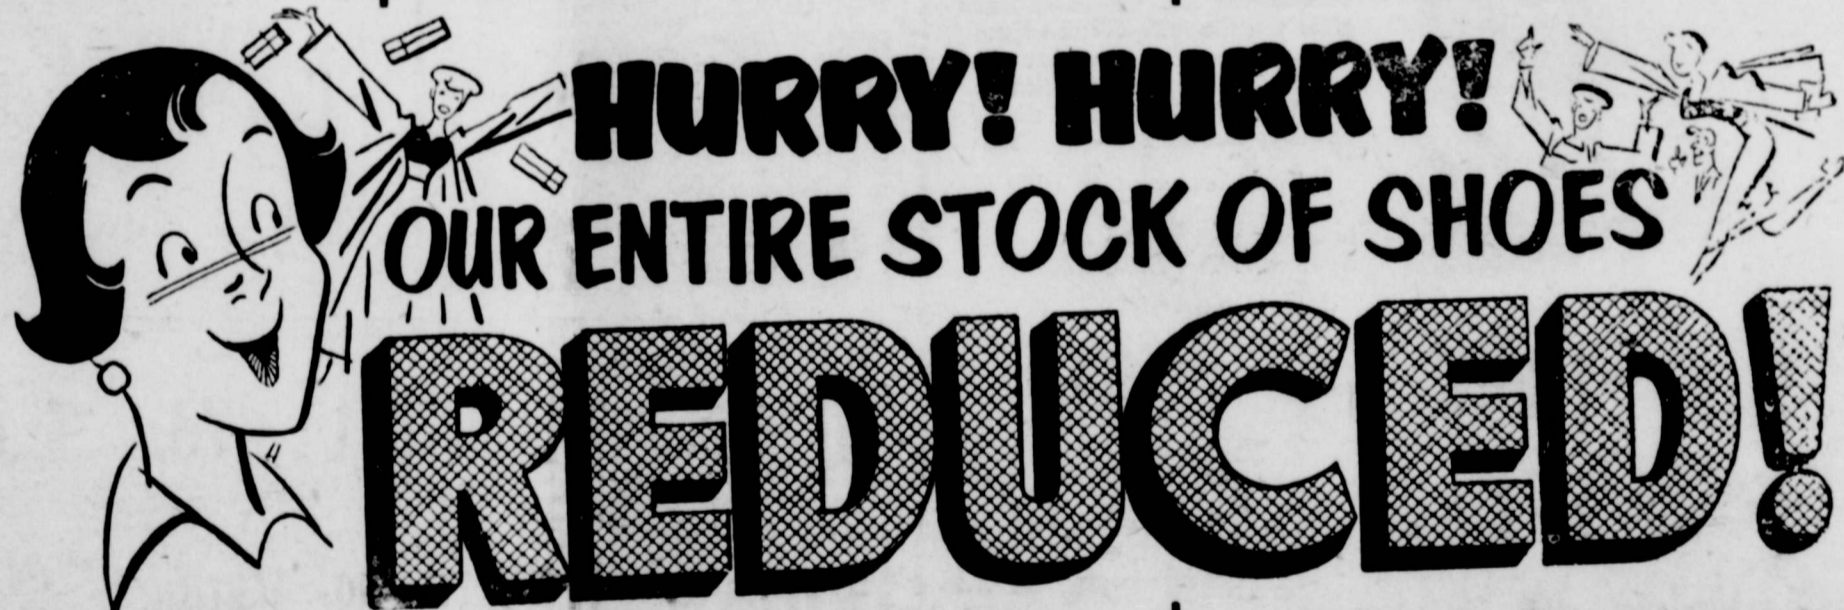 HURRY! HURRY!
OUR ENTIRE STOCK OF SHOES
REDUCED!